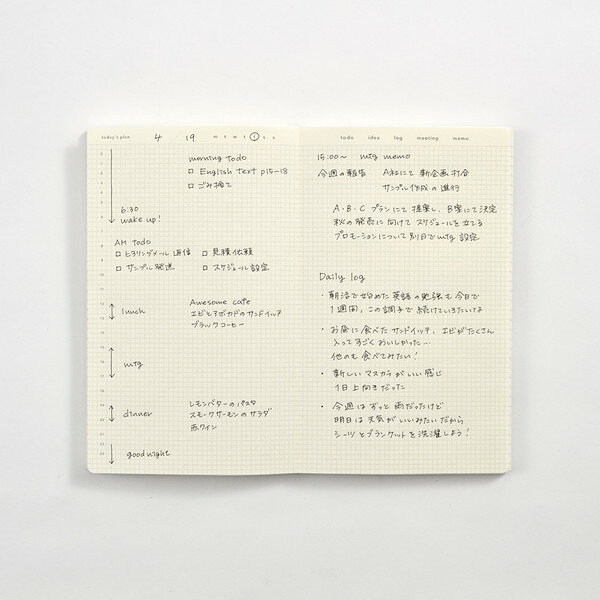 today's plan 4 / 19 m t w t f s s
morning todo
□ English Text p15-18
□ ごみ捨て
6:30
wake up!
AM todo
□ ヒアリングメール返信 □ 見積依頼
□ サンプル発送 □ スケジュール設定
lunch
Awesome cafe
エビとアボカドのサンドイッチ
ブラックコーヒー
mtg
dinner
レモンバターのパスタ
スモークサーモンのサラダ
赤ワイン
good night
todo idea log meeting memo
15:00~ mtg memo
今週の報告 A社にて新企画打合
サンプル作成の進行
A・B・Cプランにて提案し、B案にて決定
秋の発売に向けてスケジュールを立てる
プロモーションについて別日でmtg設定
Daily log
・朝活で始めた英語の勉強も今日で
1週間、この調子で続けていきたいな
・お昼に食べたサンドイッチ、エビがたくさん
入ってすごくおいしかった…
他のも食べてみたい!
・新しいマスカラがいい感じ
1日上向きだった
・今週はずっと雨だったけど
明日は天気がいいみたいだから
シーツとブランケットを洗濯しよう!